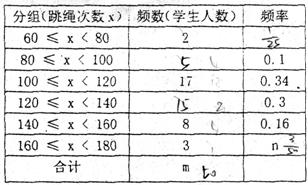 分组(跳绳次数x) 频数(学生人数) 频率
60 ≤ x < 80 2 1/25
80 ≤ x < 100 5 0.1
100 ≤ x < 120 17 0.34
120 ≤ x < 140 15 2 0.3
140 ≤ x < 160 8 0.16
160 ≤ x < 180 3 n
合计 m 50